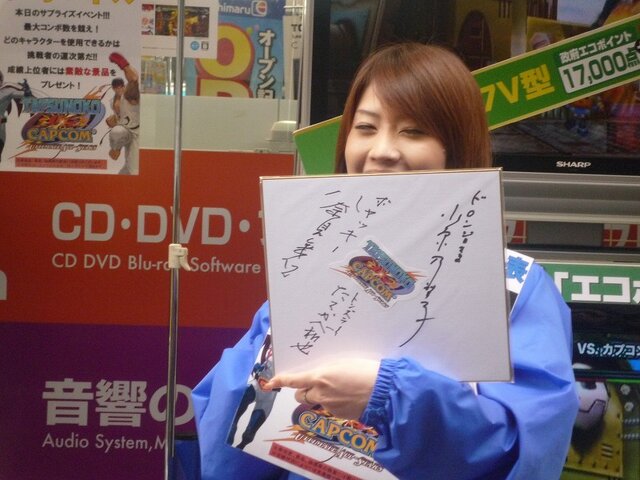 本日のサプライズイベント!!!
最大コンボ数を競え!
どのキャラクターを使用できるかは
挑戦者の運次第だ!!
成績上位者には素敵な景品を
プレゼント!
TATSUNOKO
VS.
CAPCOM
CD・DVD・
CD DVD Blu-ray Software
音響の
Audio System, M
オープン
政府エコポイント
17,000点
7V型
SHARP
ドロンジョ
小原乃梨子
ボヤッキー
八奈見乗児
トンズラー
たてかべ和也
TATSUNOKO
VS.
CAPCOM
CAPCOM
「エコポ
VS. カプコン